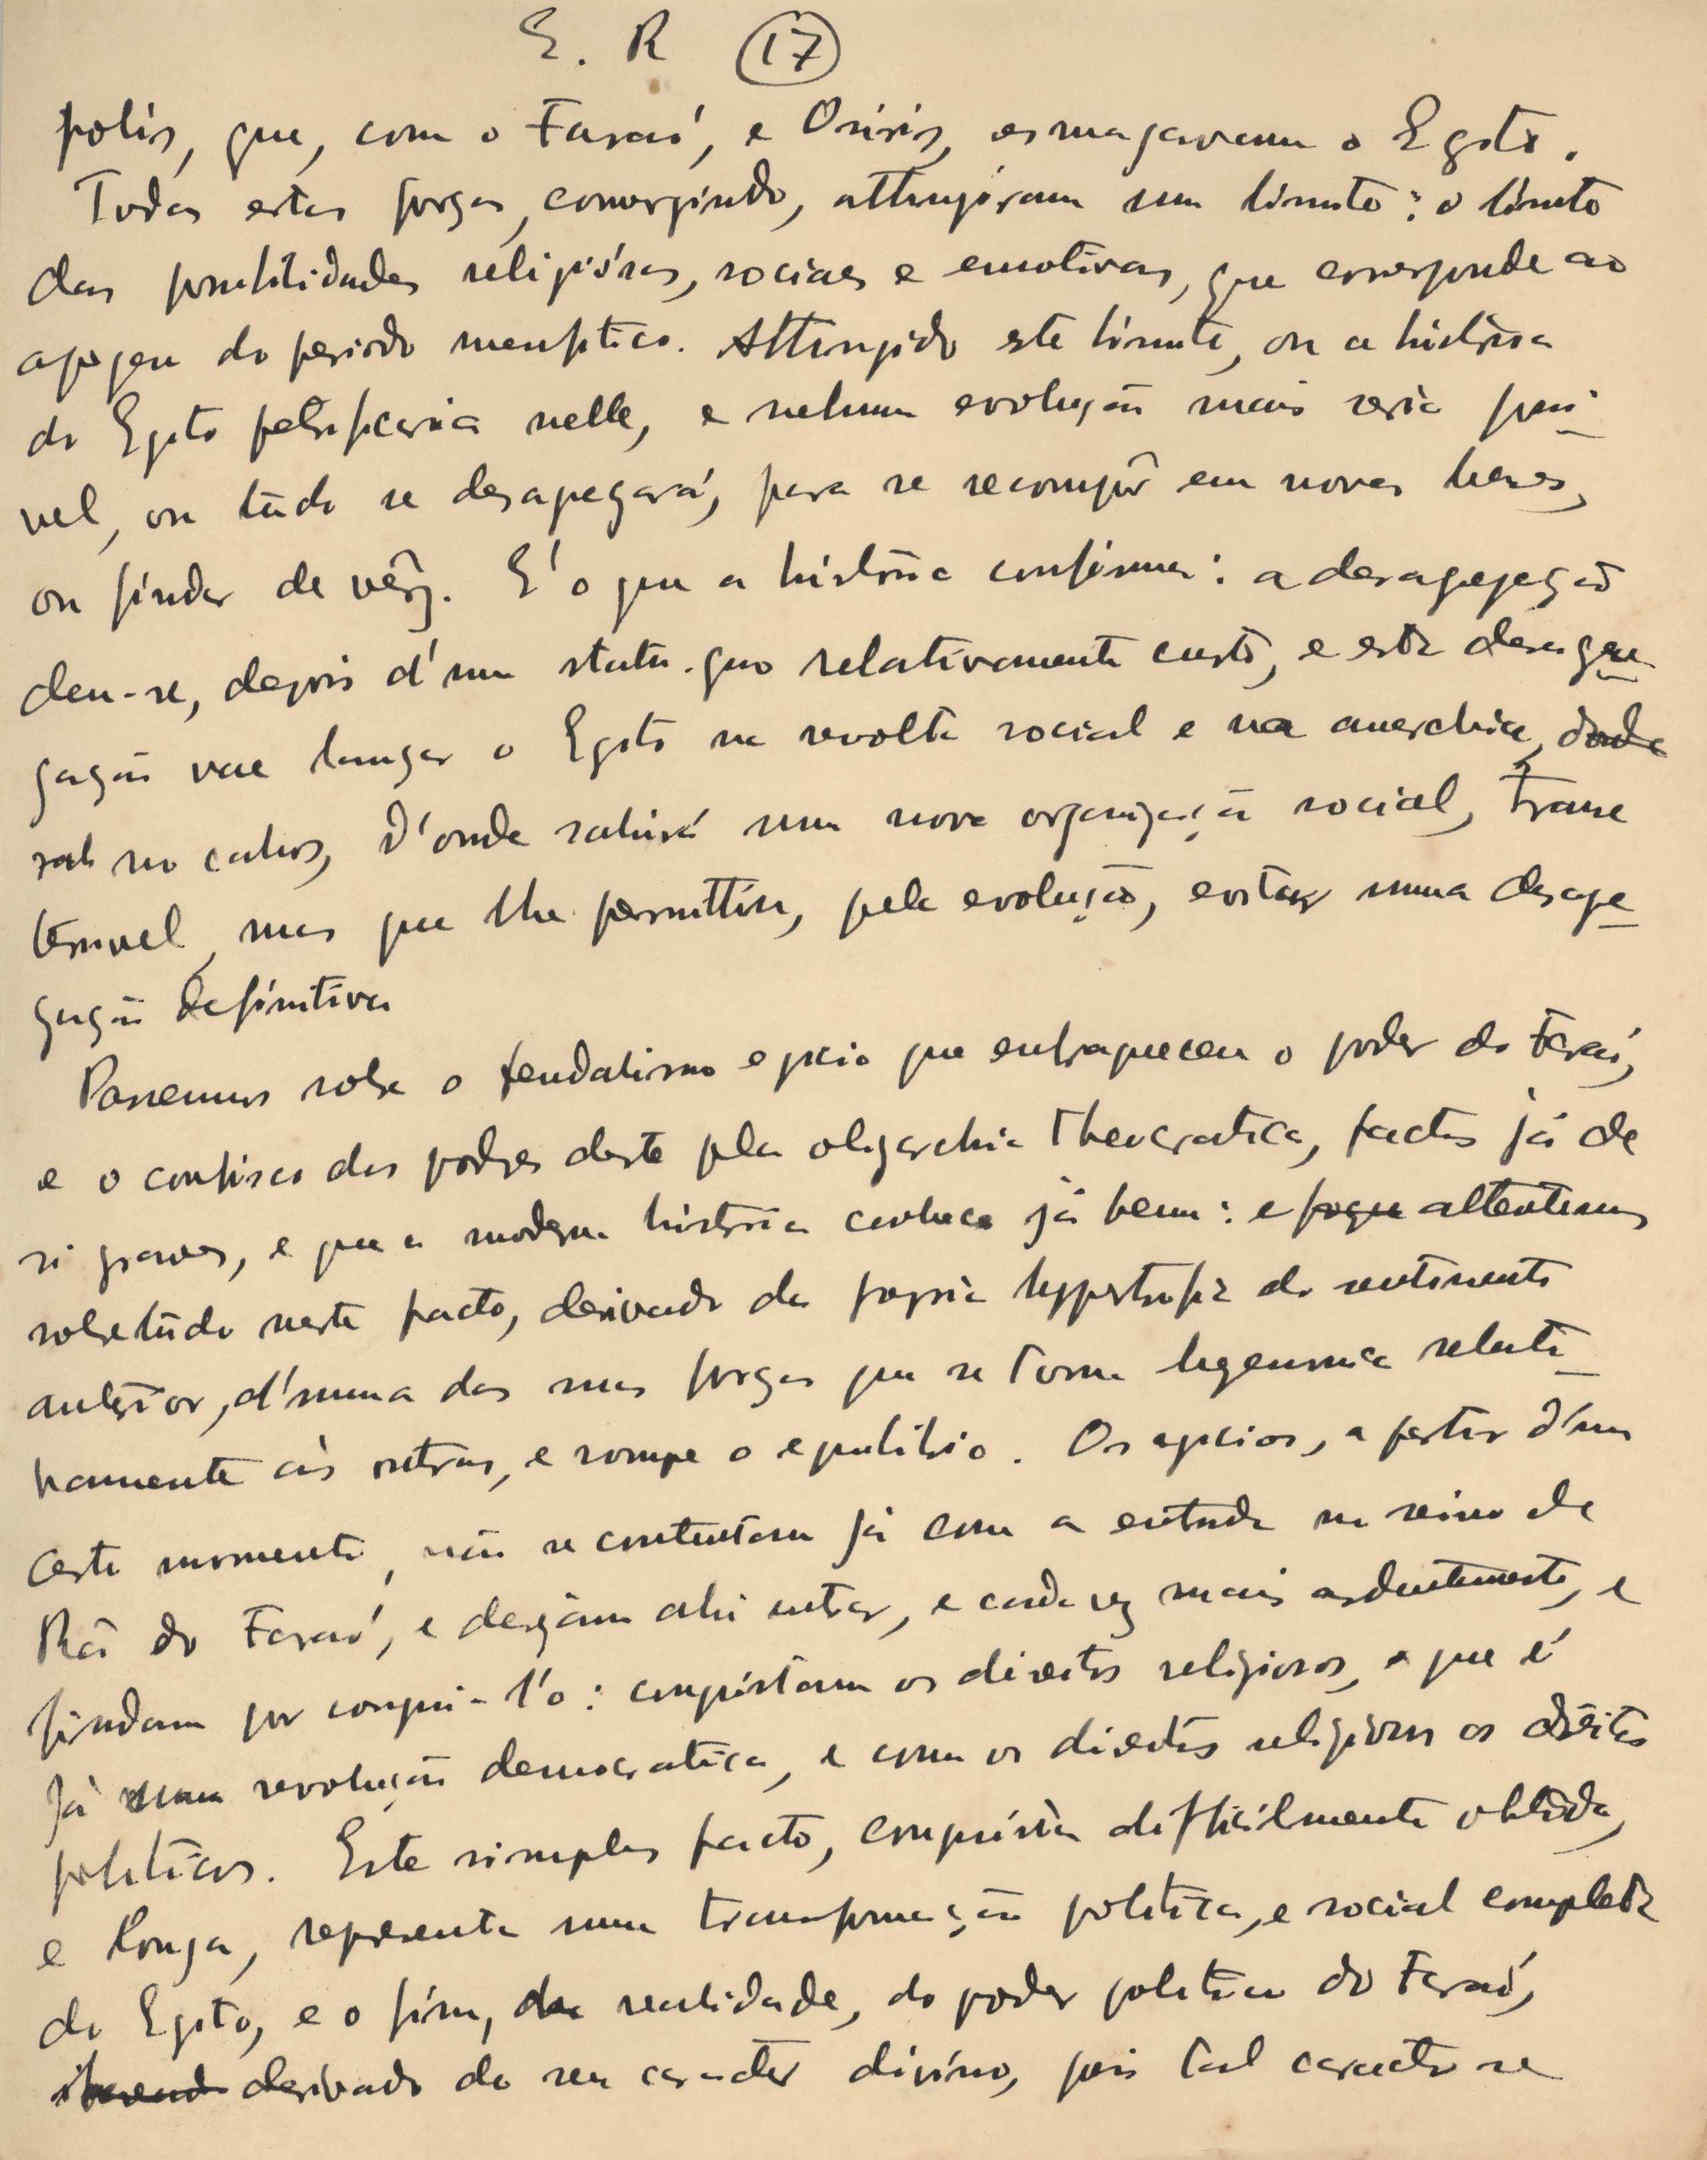 E. R (17)
polis, que, com o Faraó, e Osiris, esmagavam o Egito.
Todas estas forças, convergindo, attingiram um limite: o limite
das possibilidades religiósas, sociaes e emotivas, que corresponde ao
apogeu do periodo menfitico. Attingido este limite, ou a história
do Egito petrificaria nelle, e nehum evolução mais seria possi-
vel, ou tudo se desagregará, para se recompôr em novas bases,
ou findar de vêz. E' o que a história confirma: a desagregação
deu-se, depois d'um statu-quo relativamente curto, e esta desagre-
gação vae lançar o Egito na revolta social e na anarchia, donde
no cahos, d'onde sahirá uma nova organização social, trans
terrivel, mas que lhe permittiu, pela evolução, evitar uma desagre-
gação definitiva
Passemos sobre o feudalismo egicio que enfraqueceu o poder do Faraó,
e o confisco dos podres deste pla oligarchia theocratica, factos já de
si graves, e que a moderna história conhece já bem: e attentemos
sobretudo neste facto, derivado da propria hypertrofia do sentimento
anterior, d'numa das suas forças que se torna hegemonica relati-
vamente ás outras, e rompe o equilibrio. Os egicios, a partir d'um
certo momento, não se contentam já com a entrada no reino de
Rá do Faraó, e desejam ahi entrar, e cada vez mais ardentemente, e
findam por conqui-l'o: conquistam os direitos religiosos, o que é
já uma revolução democratica, e com os direitos religiosos os direitos
politicos. Este simples facto, conquista difficilmente obtida,
e longa, representa uma transformação politica, e social completa
do Egito, e o fim, da realidade, do poder politico do Faraó,
derivado do seu caracter divino, pois tal caracter se